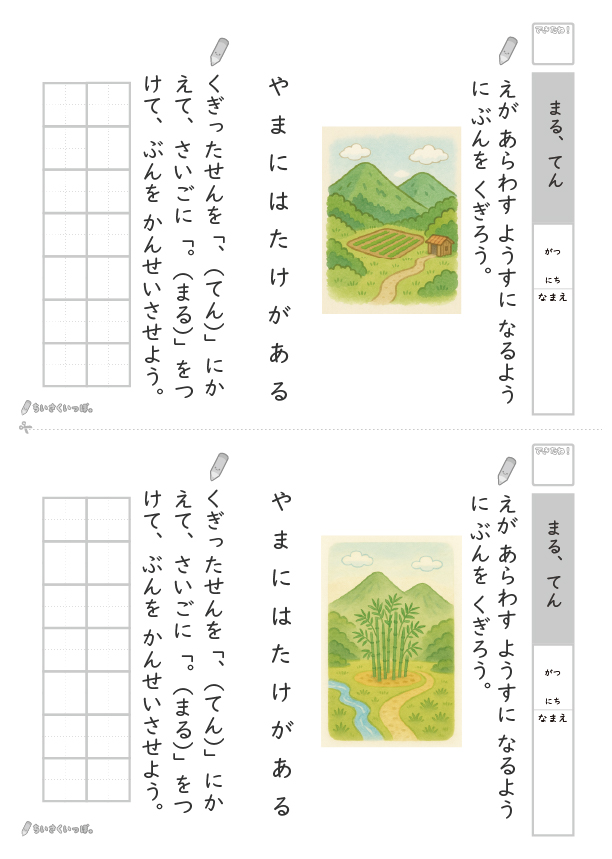 できたね！
まる、てん
がつ
にち
なまえ
えが あらわす ようすに なるよう
に ぶんを くぎろう。
やまにはたけがある
くぎったせんを「、（てん）」にか
えて、さいごに「。（まる）」をつ
けて、ぶんを かんせいさせよう。
ちいさくいっぽ。
できたね！
まる、てん
がつ
にち
なまえ
えが あらわす ようすに なるよう
に ぶんを くぎろう。
やまにはたけがある
くぎったせんを「、（てん）」にか
えて、さいごに「。（まる）」をつ
けて、ぶんを かんせいさせよう。
ちいさくいっぽ。